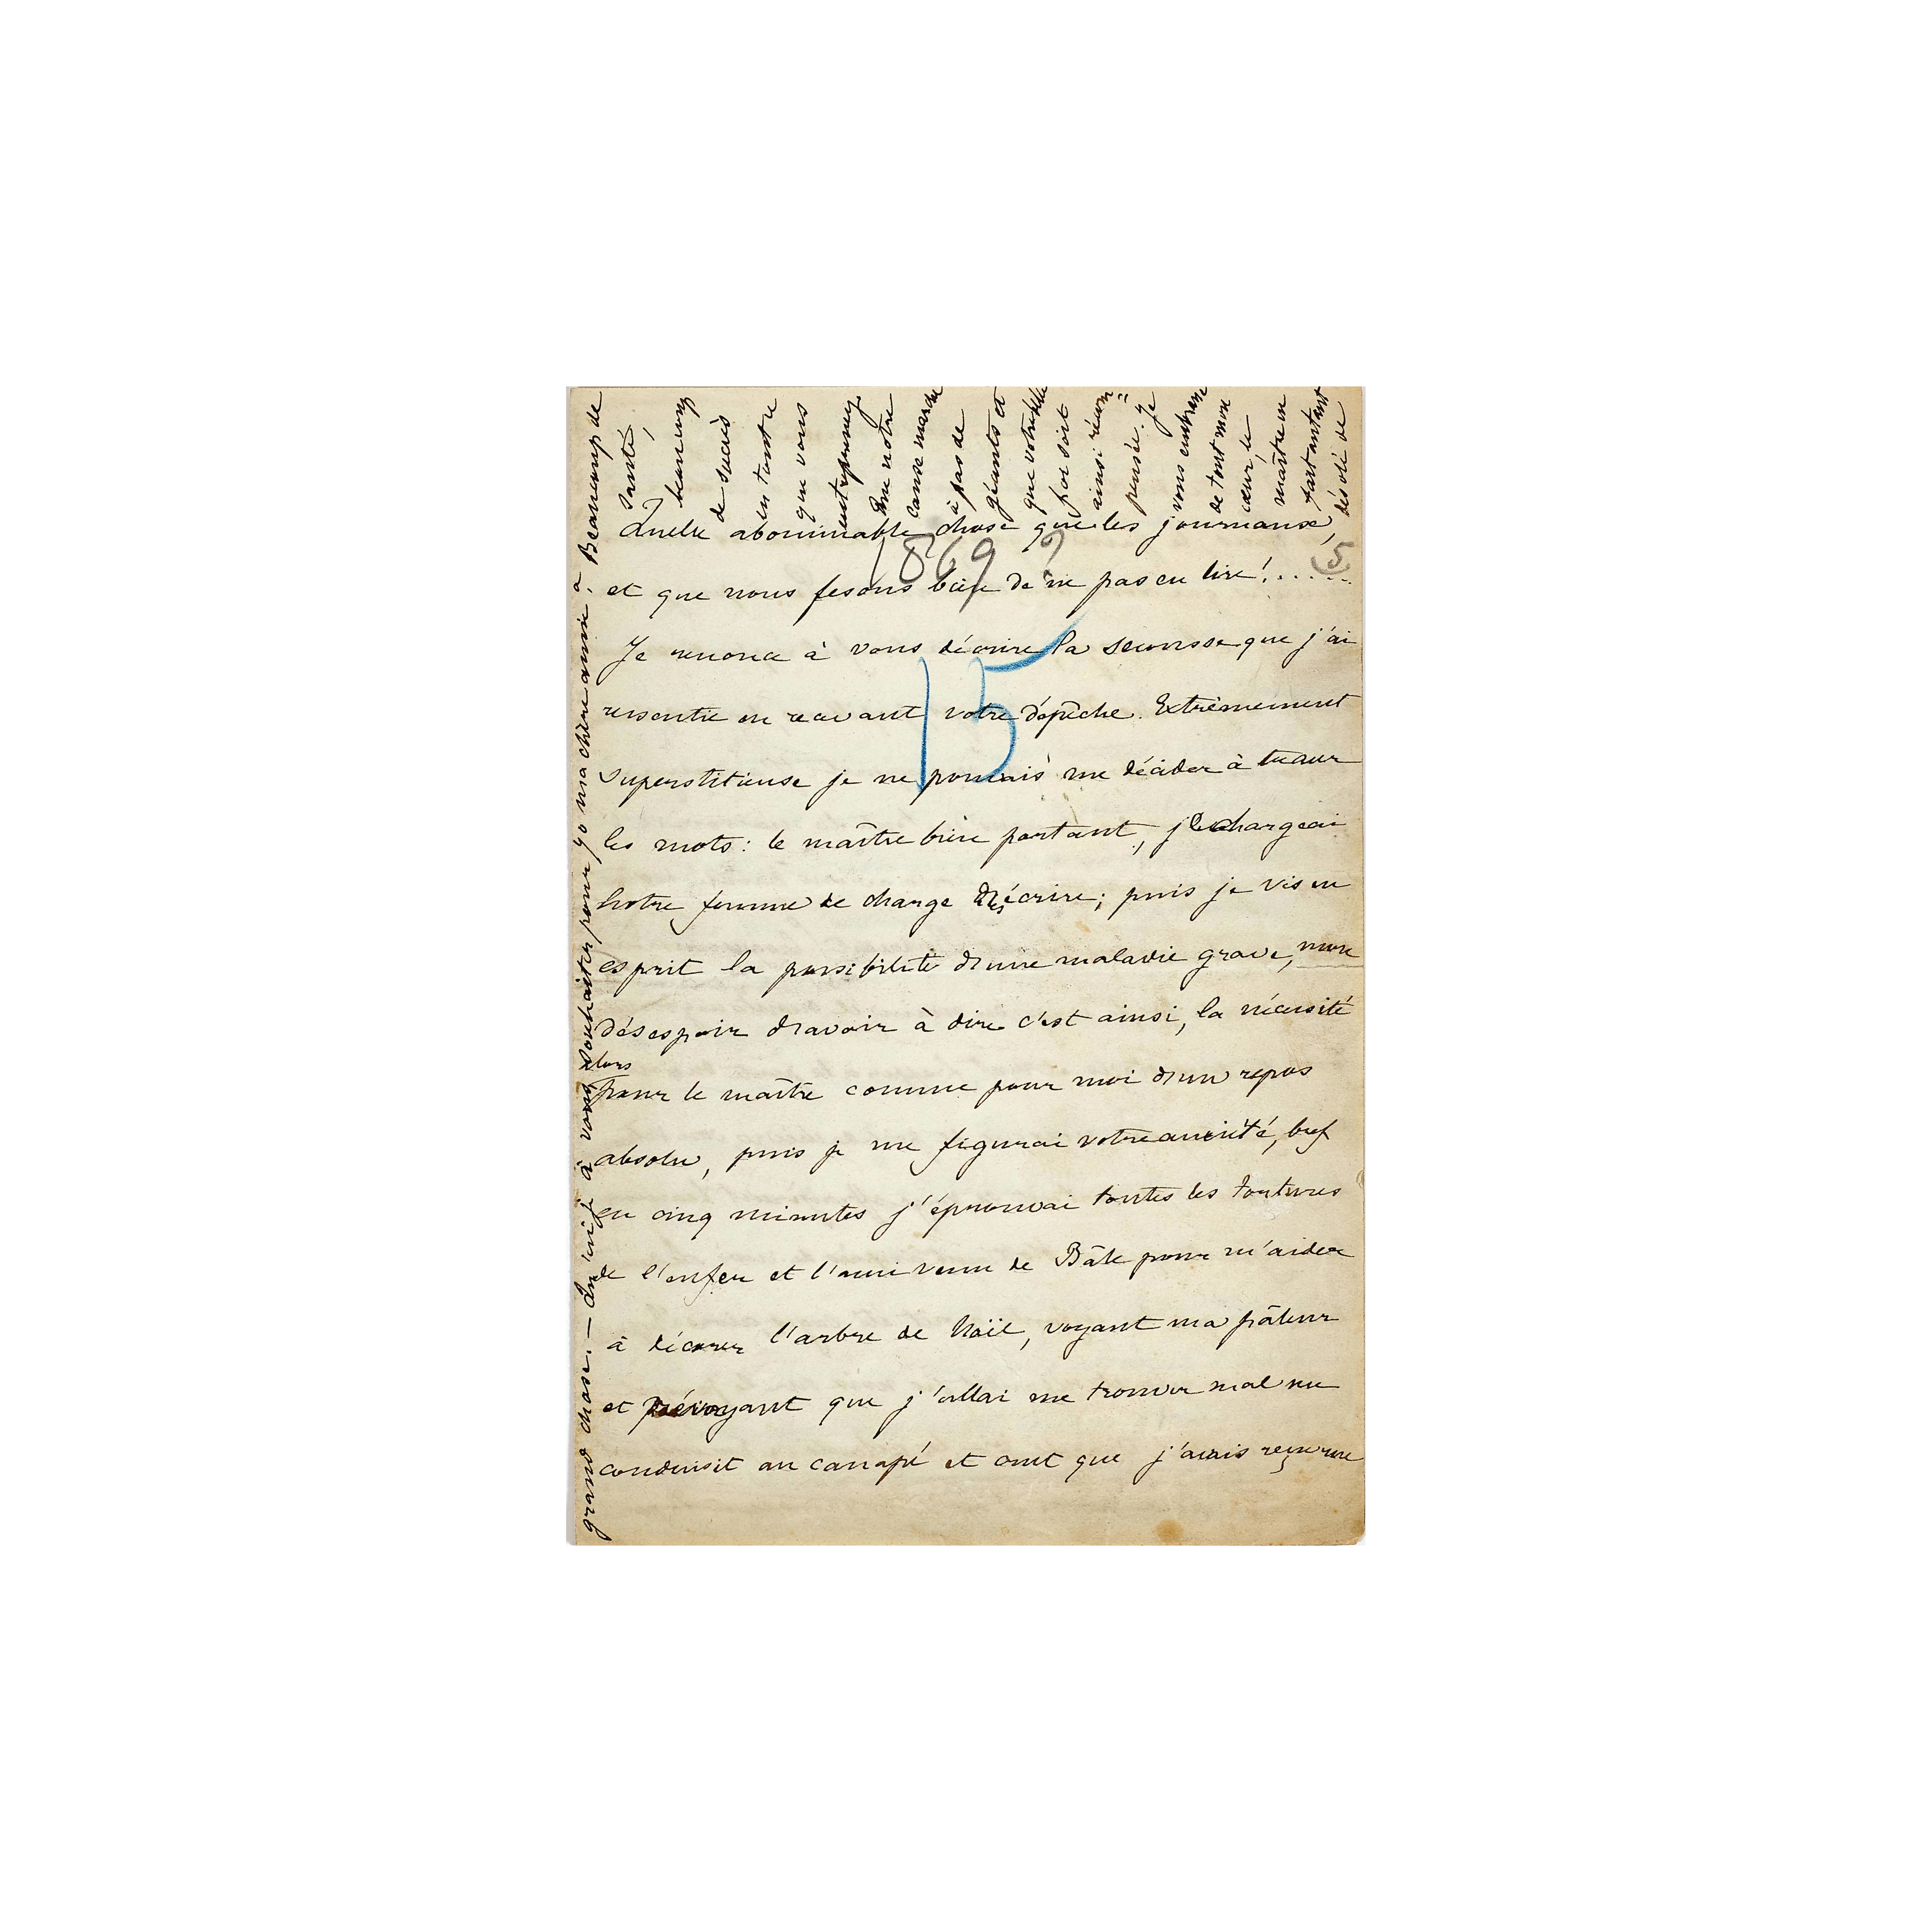 Quelle abominable chose que les journaux,
1869?
5
et que nous fesons bien de ne pas en lire!......
Je renonce à vous décrire la secousse que j'ai
15
ressentie en recevant votre dépêche. Extrêmement
superstitieuse je ne pouvais me décider à tracer
les mots: le maître bien portant, je chargeai
notre femme de charge de les écrire; puis je vis en
esprit la possibilité d'une maladie grave, mon
désespoir d'avoir à dire c'est ainsi, la nécessité
alors
pour le maître comme pour moi d'un repos
absolu, puis je me figurai votre anxiété, bref
en cinq minutes j'éprouvai toutes les tortures
de l'enfer et l'ami venu de Bâle pour m'aider
à décorer l'arbre de Noël, voyant ma pâleur
et prévoyant que j'allai me trouver mal me
conduisit au canapé et crut que j'avais reçu une
grand chose. — Qu'ai-je à vous souhaiter pour 70 ma chère amie?
Beaucoup de
santé,
beaucoup
de succès
en tout ce
que vous
entreprenez
que notre
cause marche
à pas de
géants et
que votre belle
foi soit
ainsi récom=
pensée. Je
vous embrasse
de tout mon
cœur, le
maître en
fait autant